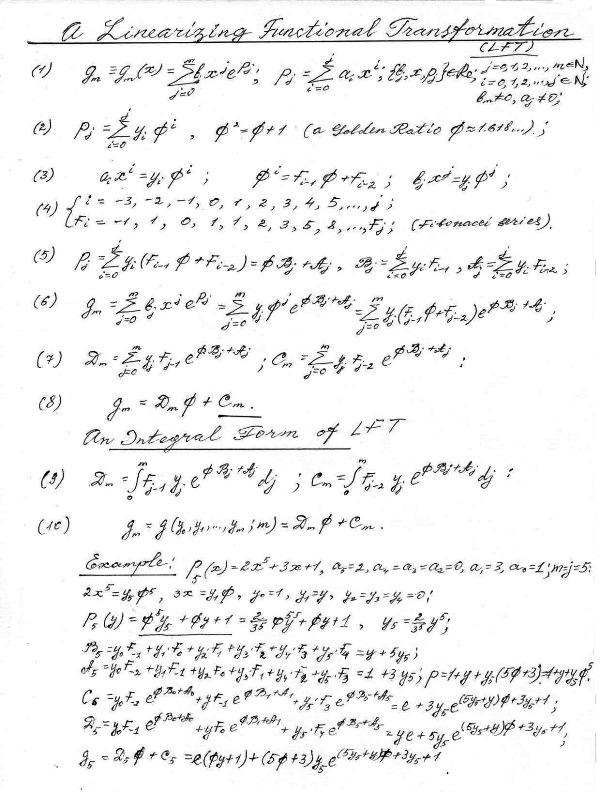 A Linearizing Functional Transformation
(LFT)
(1) g_m ≡ g_m(x) = Σ_{j=0}^{m} b_j x^j e^{P_j}; P_j = Σ_{i=0}^{j} a_i x^i; {b_j, x, P_j} ∈ Re; j=0,1,2,..., m∈N, i=0,1,2,...,j∈N; b_m≠0, a_j≠0;
(2) P_j = Σ_{i=0}^{j} y_i ϕ^i , ϕ²=ϕ+1 (a Golden Ratio ϕ≈1.618...);
(3) a_i x^i = y_i ϕ^i ; ϕ^i = F_{i-1} ϕ + F_{i-2} ; b_j x^j = y_j ϕ^j ;
(4) { i = -3, -2, -1, 0, 1, 2, 3, 4, 5,..., j ;
F_i = -1, 1, 0, 1, 1, 2, 3, 5, 8,..., F_j ; (Fibonacci series).
(5) P_j = Σ_{i=0}^{j} y_i (F_{i-1} ϕ + F_{i-2}) = ϕ B_j + A_j , B_j = Σ_{i=0}^{j} y_i F_{i-1} , A_j = Σ_{i=0}^{j} y_i F_{i-2} ;
(6) g_m = Σ_{j=0}^{m} b_j x^j e^{P_j} = Σ_{j=0}^{m} y_j ϕ^j e^{ϕB_j+A_j} = Σ_{j=0}^{m} y_j (F_{j-1} ϕ + F_{j-2}) e^{ϕB_j+A_j} ;
(7) D_m = Σ_{j=0}^{m} y_j F_{j-1} e^{ϕB_j+A_j} ; C_m = Σ_{j=0}^{m} y_j F_{j-2} e^{ϕB_j+A_j} :
(8) g_m = D_m ϕ + C_m .
An Integral Form of LFT
(9) D_m = ∫_0^m F_{j-1} y_j e^{ϕB_j+A_j} dj ; C_m = ∫_0^m F_{j-2} y_j e^{ϕB_j+A_j} dj :
(10) g_m = g(y_0, y_1, ..., y_m ; m) = D_m ϕ + C_m .
Example: P_5(x) = 2x^5+3x+1, a_5=2, a_4=a_3=a_2=0, a_1=3, a_0=1; m=j=5:
2x^5 = y_5 ϕ^5, 3x = y_1 ϕ, y_0=1, y_1=y, y_2=y_3=y_4=0;
P_5(y) = ϕ^5 y_5 + ϕy + 1 = 2/3^5 ϕ^5 y^5 + ϕy + 1 , y_5 = 2/3^5 y^5 ;
B_5 = y_0 F_{-1} + y_1 F_0 + y_2 F_1 + y_3 F_2 + y_4 F_3 + y_5 F_4 = y + 5y_5 ;
A_5 = y_0 F_{-2} + y_1 F_{-1} + y_2 F_0 + y_3 F_1 + y_4 F_2 + y_5 F_3 = 1 + 3y_5 ; p = 1+y+y_5(5ϕ+3) = 1+y+y_5 ϕ^5.
C_5 = y_0 F_{-2} e^{ϕB_0+A_0} + y F_{-1} e^{ϕB_1+A_1} + y_5 F_3 e^{ϕB_5+A_5} = e + 3y_5 e^{(5y_5+y)ϕ+3y_5+1} ;
D_5 = y_0 F_{-1} e^{ϕB_0+A_0} + y F_0 e^{ϕB_1+A_1} + y_5 F_4 e^{ϕB_5+A_5} = ye + 5y_5 e^{(5y_5+y)ϕ+3y_5+1} ;
g_5 = D_5 ϕ + C_5 = e(ϕy+1) + (5ϕ+3) y_5 e^{(5y_5+y)ϕ+3y_5+1}